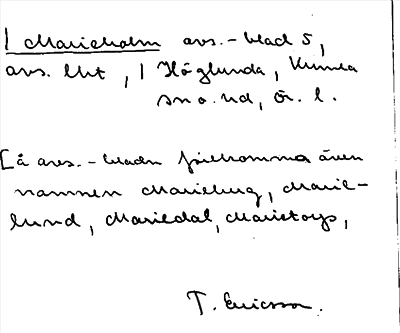 | Marieholm avs.-blad 5,
avs. lht, | Höglunda, Kumla
sn o. hd, Ör. l.
[å avs.-bladn förekomma även
namnen Marieberg, Marie-
lund, Mariedal, Marietorp,
T. Ericsson.